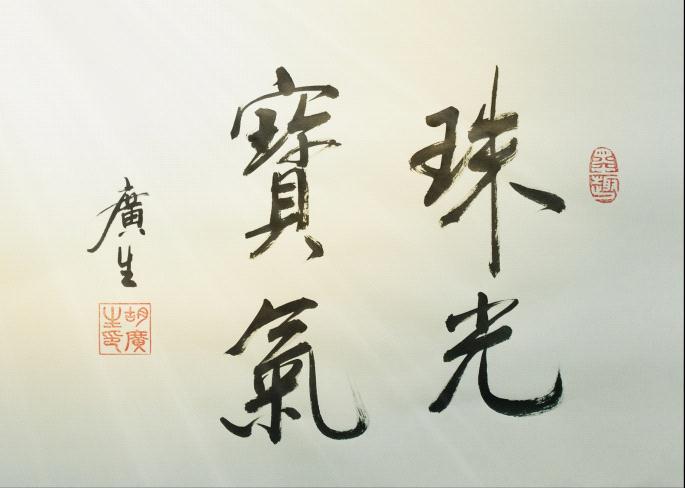 墨趣
珠光
寶氣
廣生
胡廣
生印